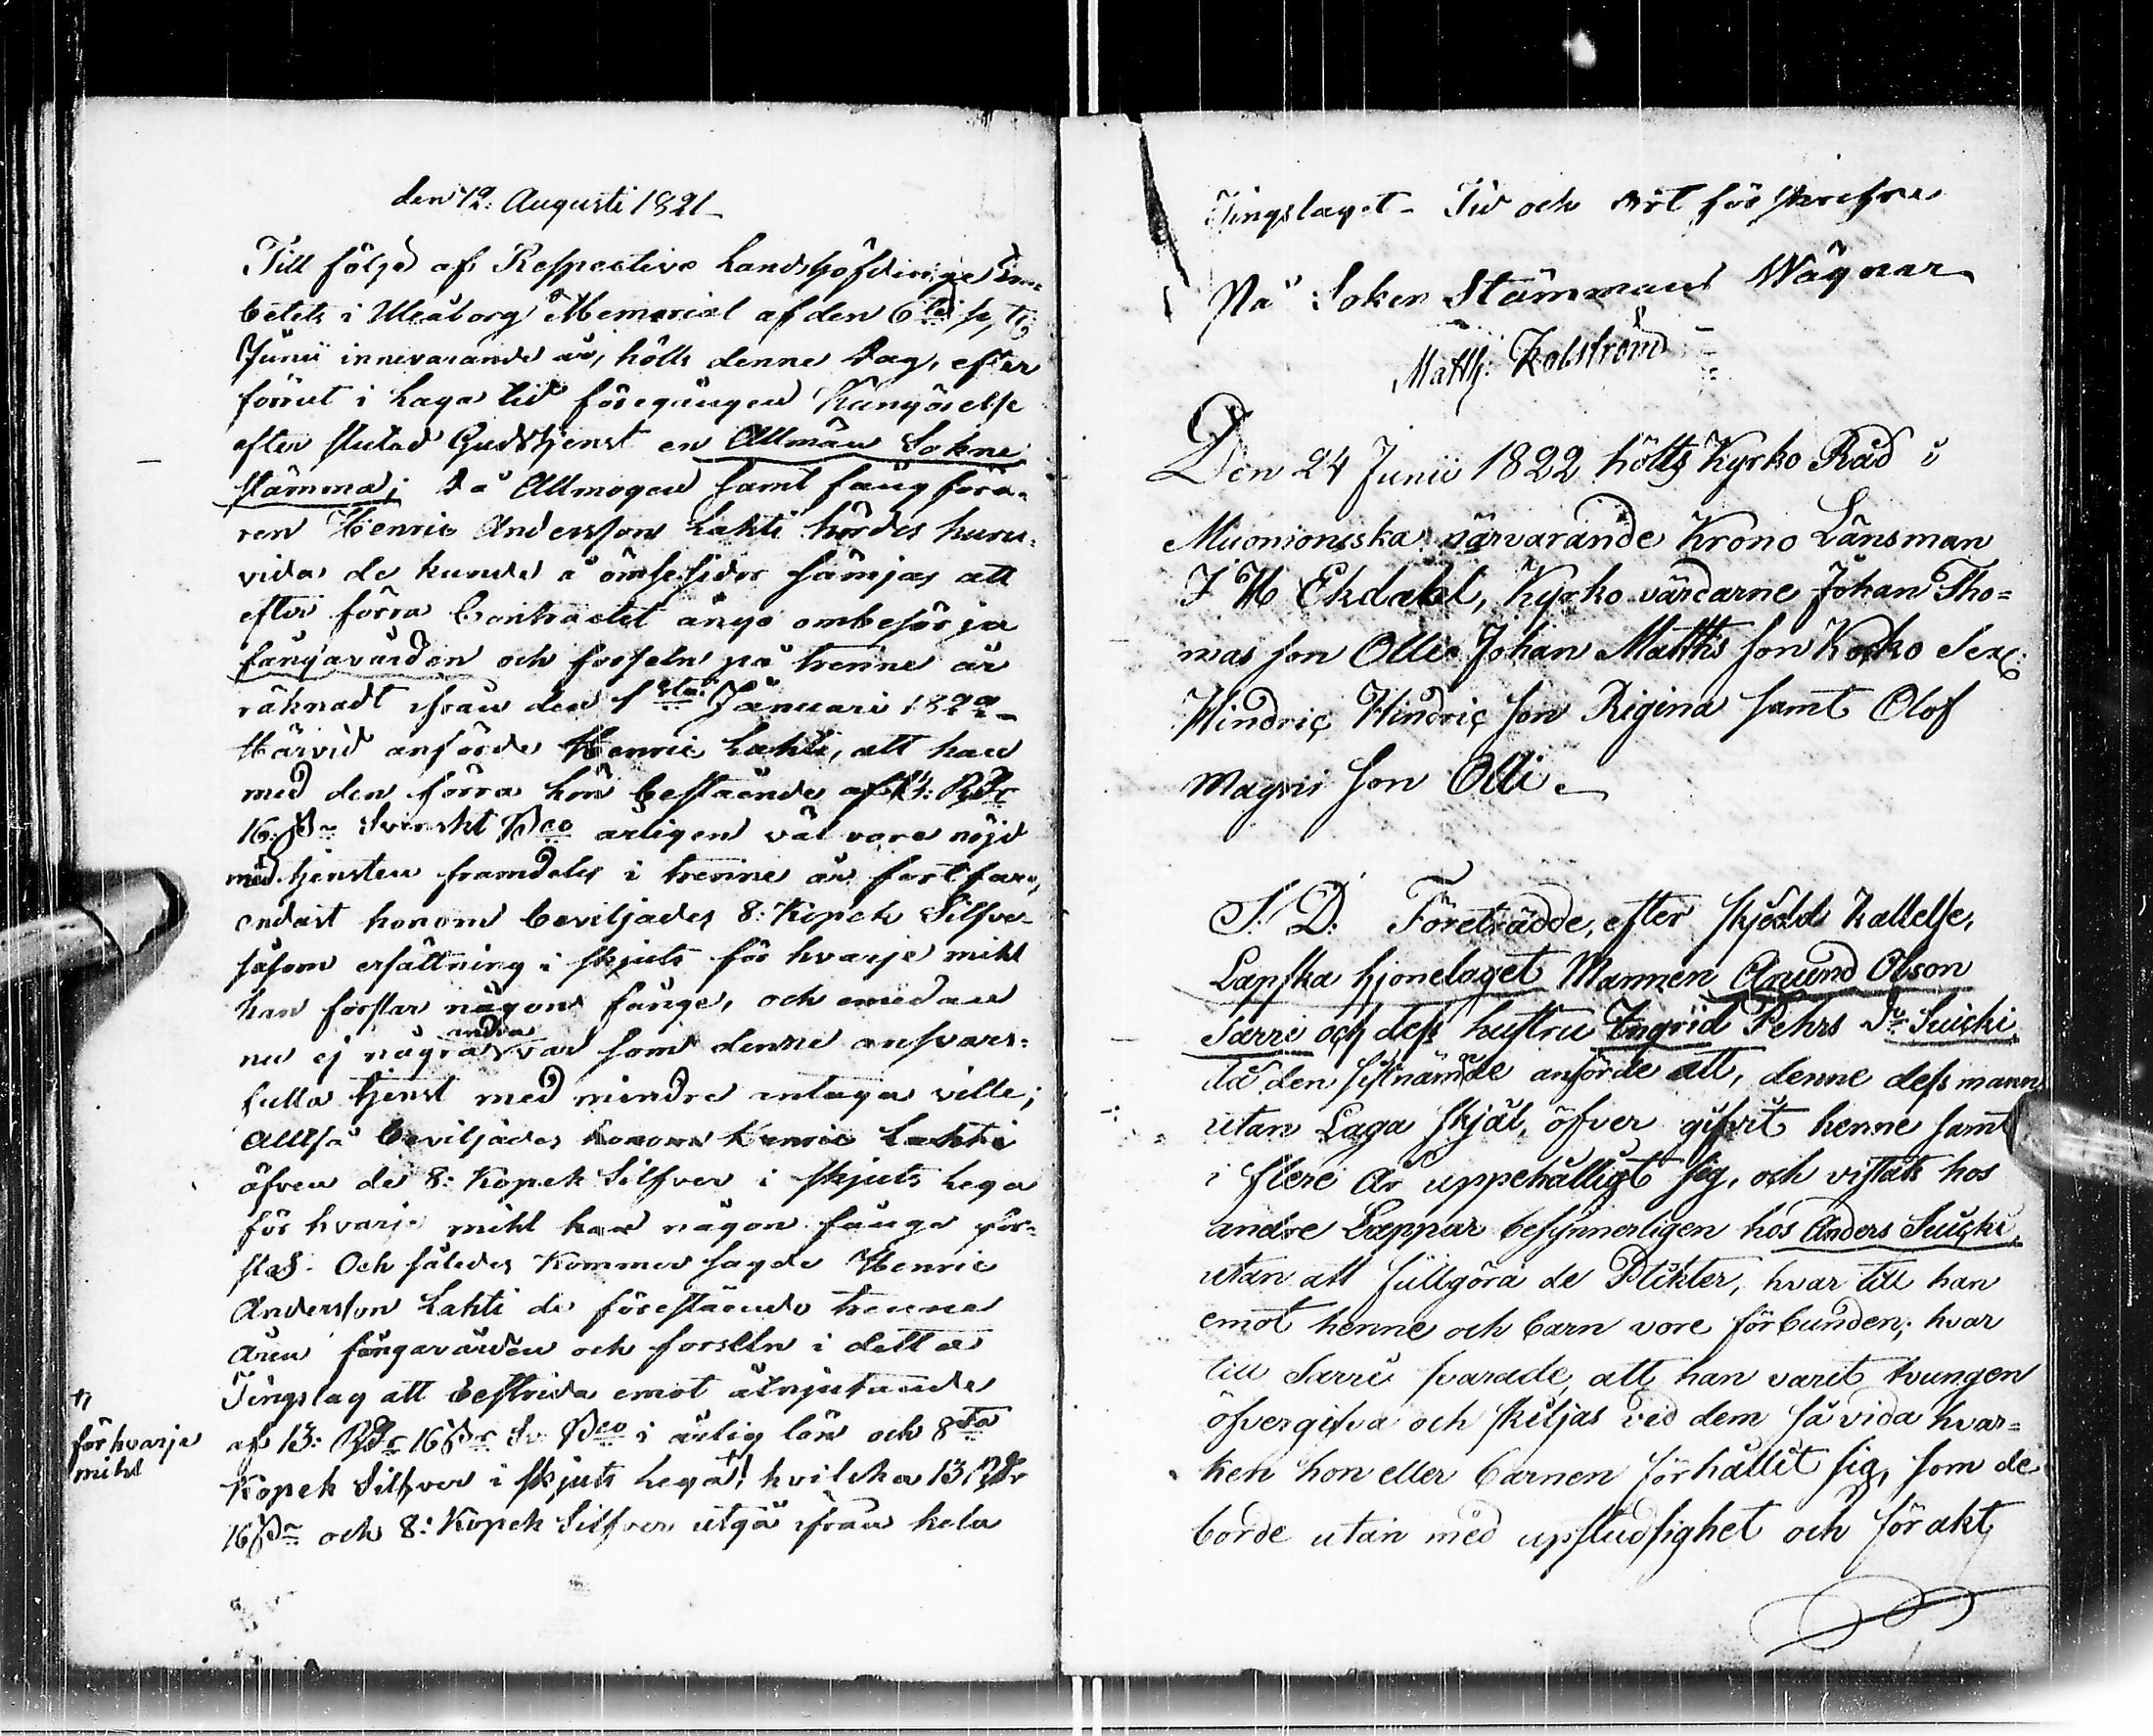 den 12: Augusti 1821
Till följe af Respective Landshöfdinge Em-
betets i Uleåborg Memorial af den 6te
Junii innevarande år, hölts denne dag, efter
förut i Laga tid föregången Kungörelse
efter slutad Gudstjenst en Allmän Sokne
stämma; då Allmogen samt fångföra-
ren Henric Andersson Lahti hördes huru-
vida de kunde å ömse sidor sämjas att
efter förra Contractet ånyo ombesörja
fångavården och forseln på trenne år
räknadt ifrån den 1sta Januari 1822
Härvid anförde Henric Lahti, att han
med den förra lön bestående af 13: Rdr
16 s Svenskt Bco årligen väl vore nöjd
med tjensten framdeles i trenne år fortfara,
endast honom beviljades 8: Kopek Silfver
såsom ersättning i skjuts för hvarje mihl
han forslar någon fånge, och emedan
nu ej några andra var som denne ansvars-
fulla tjenst med mindre antaga ville;
Alltså beviljades honom Henric Lahti
äfven de 8: Kopek Silfver i skjuts lega
för hvarje mihl han någon fånge for-
slas. Och således kommer sagde Henric
Andersson Lahti de förestående trenne
åren fångavården och forseln i detta
Tingslag att bestrida emot åtnjutande
af 13: Rdr 16 s Sv. Bco i årlig lön och 8ta
Kopek Silfver i skjuts lega †! hvilcka 13 Rdr
16 s och 8: Kopek Silfver utgå ifrån hela
†
för hvarje
mihl
Tingslaget. Tid och Ort förskrefne
På Soken Stämmans Wägnar
Matth: Kolström
Den 24 Junii 1822 hölts Kyrko Råd i
Muonioniska närvarande Krono Länsman
I H Ekdahl, Kyrko värdarne Johan Tho=
mas son Olli Johan Matths son Korko Sex:
Hindric Hindric son Rigina samt Olof
Magni son Olli.
S. D. Företrädde, efter skjedd kallelse,
Lapska hjonelaget Mannen Amund Olson
Sarri och dess hustru Ingrid Pehrs dr Suicki
då den sistnämnde anförde att, denne dess mann
utan Laga skjäl, öfver gifvit henne samt
i flere År uppehålligt sig, och vistats hos
andre Lappar besynnerligen hos Anders Suicki,
utan att fullgöra de Plikter, hvar till han
emot henne och barn vore förbunden; hvar
till Sarri svarade, att han varit tvungen
öfvergifva och skiljas ved dem så vida hvar=
ken hon eller barnen förhållit sig, som de
borde utan med upstudsighet och förakt